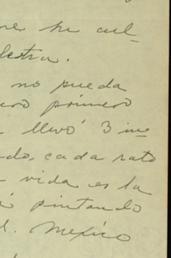 me he cul-
lestra.
no pueda
primero
llevó 3 in
do, cada rato
vida es la
pintando
d. México